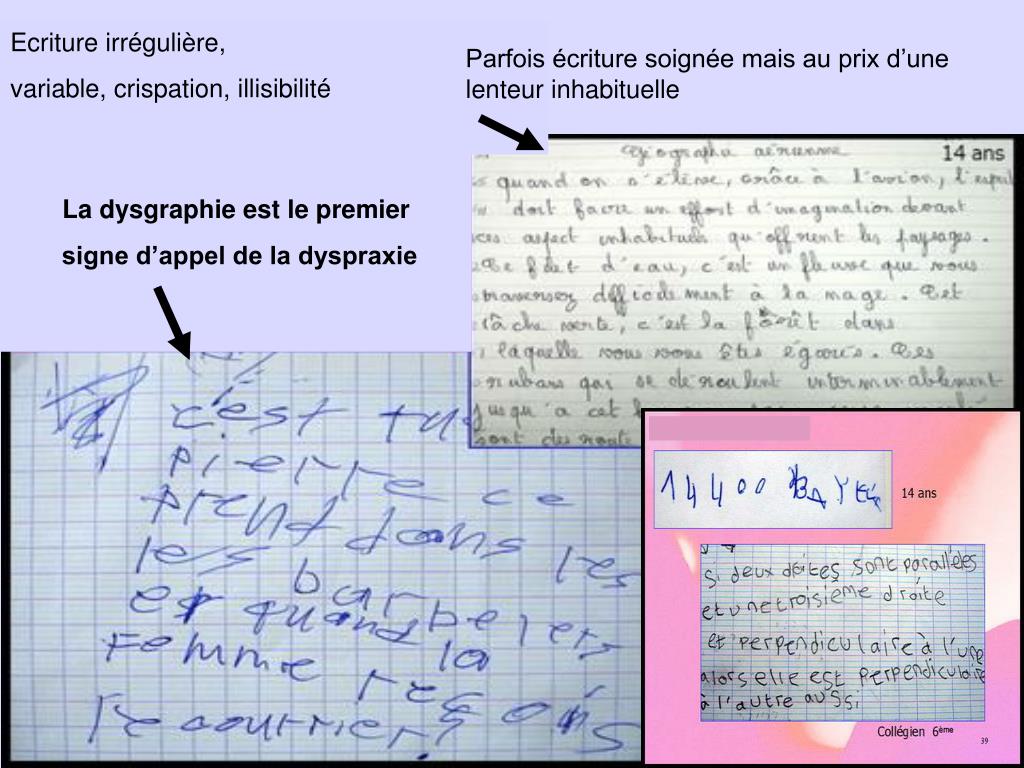 Ecriture irrégulière,
variable, crispation, illisibilité
Parfois écriture soignée mais au prix d’une
lenteur inhabituelle
La dysgraphie est le premier
signe d’appel de la dyspraxie
aérienne 14 ans
quand on s'élève, grâce à l'avion, l'esprit
doit faire un effort d'imagination devant
ces aspect inhabituels qu'offrent les paysages.
Ce filet d'eau, c'est un fleuve que vous
à la nage. Cet
verte, c'est la forêt dans
laquelle vous vous êtes égarés. Ces
rubans qui se déroulent interminablement
jusqu'a cet
sont des
c'est
pierre ce
prend dans les
les barbelers
et quand la
femme
14400
14 ans
si deux doites sont parallèles
et une troisième droite
et perpendiculaire à l'une
alors elle est perpendiculaire
à l'autre aussi
Collégien 6ème
39